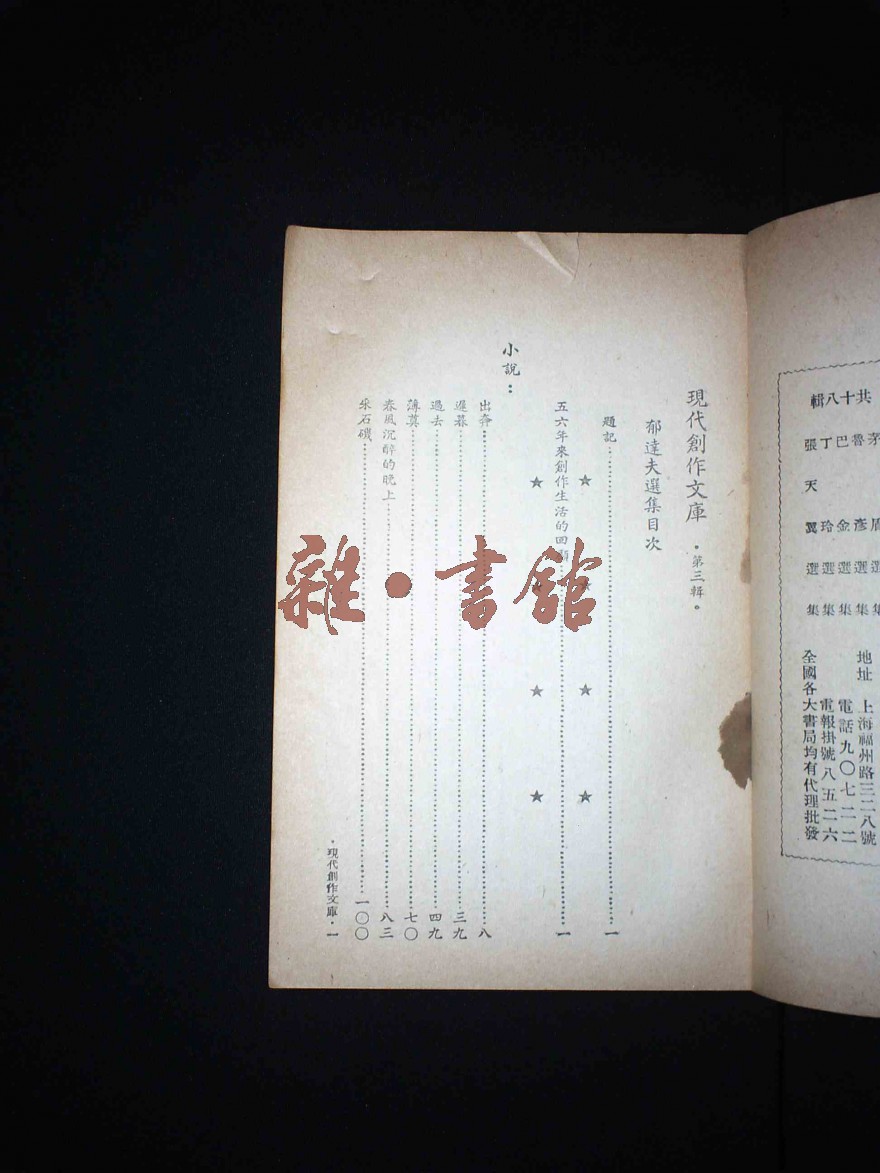 共十八輯
魯彥選集
巴金選集
丁玲選集
張天翼選集
地址 上海福州路三二八號
電話九〇七二二
電報掛號八五二六
全國各大書局均有代理批發
現代創作文庫·第三輯。
郁達夫選集目次
題記……一
★ ★ ★ ★
五六年來創作生活的回顧……一
★ ★ ★ ★
小說：
出奔……八
遲暮……三九
過去……四九
薄奠……七〇
春風沉醉的晚上……八三
采石磯……一〇〇
·現代創作文庫·一
雜·書館